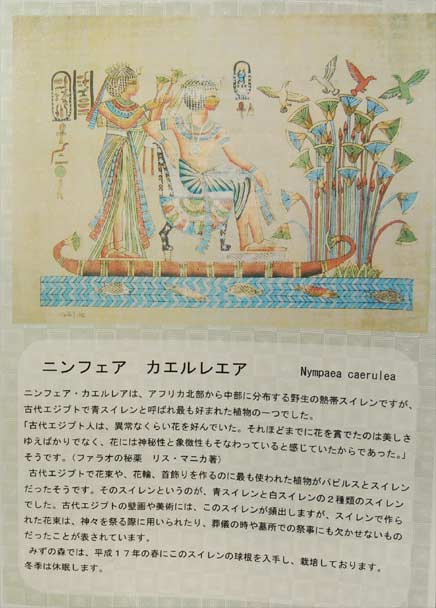 ニンフェア カエルレエア Nympaea caerulea
ニンフェア・カエルレアは、アフリカ北部から中部に分布する野生の熱帯スイレンですが、
古代エジプトで青スイレンと呼ばれ最も好まれた植物の一つでした。
「古代エジプト人は、異常なくらい花を好んでいた。それほどまでに花を賞でたのは美しさ
ゆえばかりでなく、花には神秘性と象徴性もそなわっていると感じていたからであった。」
そうです。（ファラオの秘薬 リス・マニカ著）
古代エジプトで花束や、花輪、首飾りを作るのに最も使われた植物がパピルスとスイレン
だったそうです。そのスイレンというのが、青スイレンと白スイレンの２種類のスイレン
でした。古代エジプトの壁画や美術には、このスイレンが頻出しますが、スイレンで作ら
れた花束は、神々を祭る際に用いられたり、葬儀の時や墓所での祭事にも欠かせないもの
だったことが表されています。
みずの森では、平成１７年の春にこのスイレンの球根を入手し、栽培しております。
冬季は休眠します。